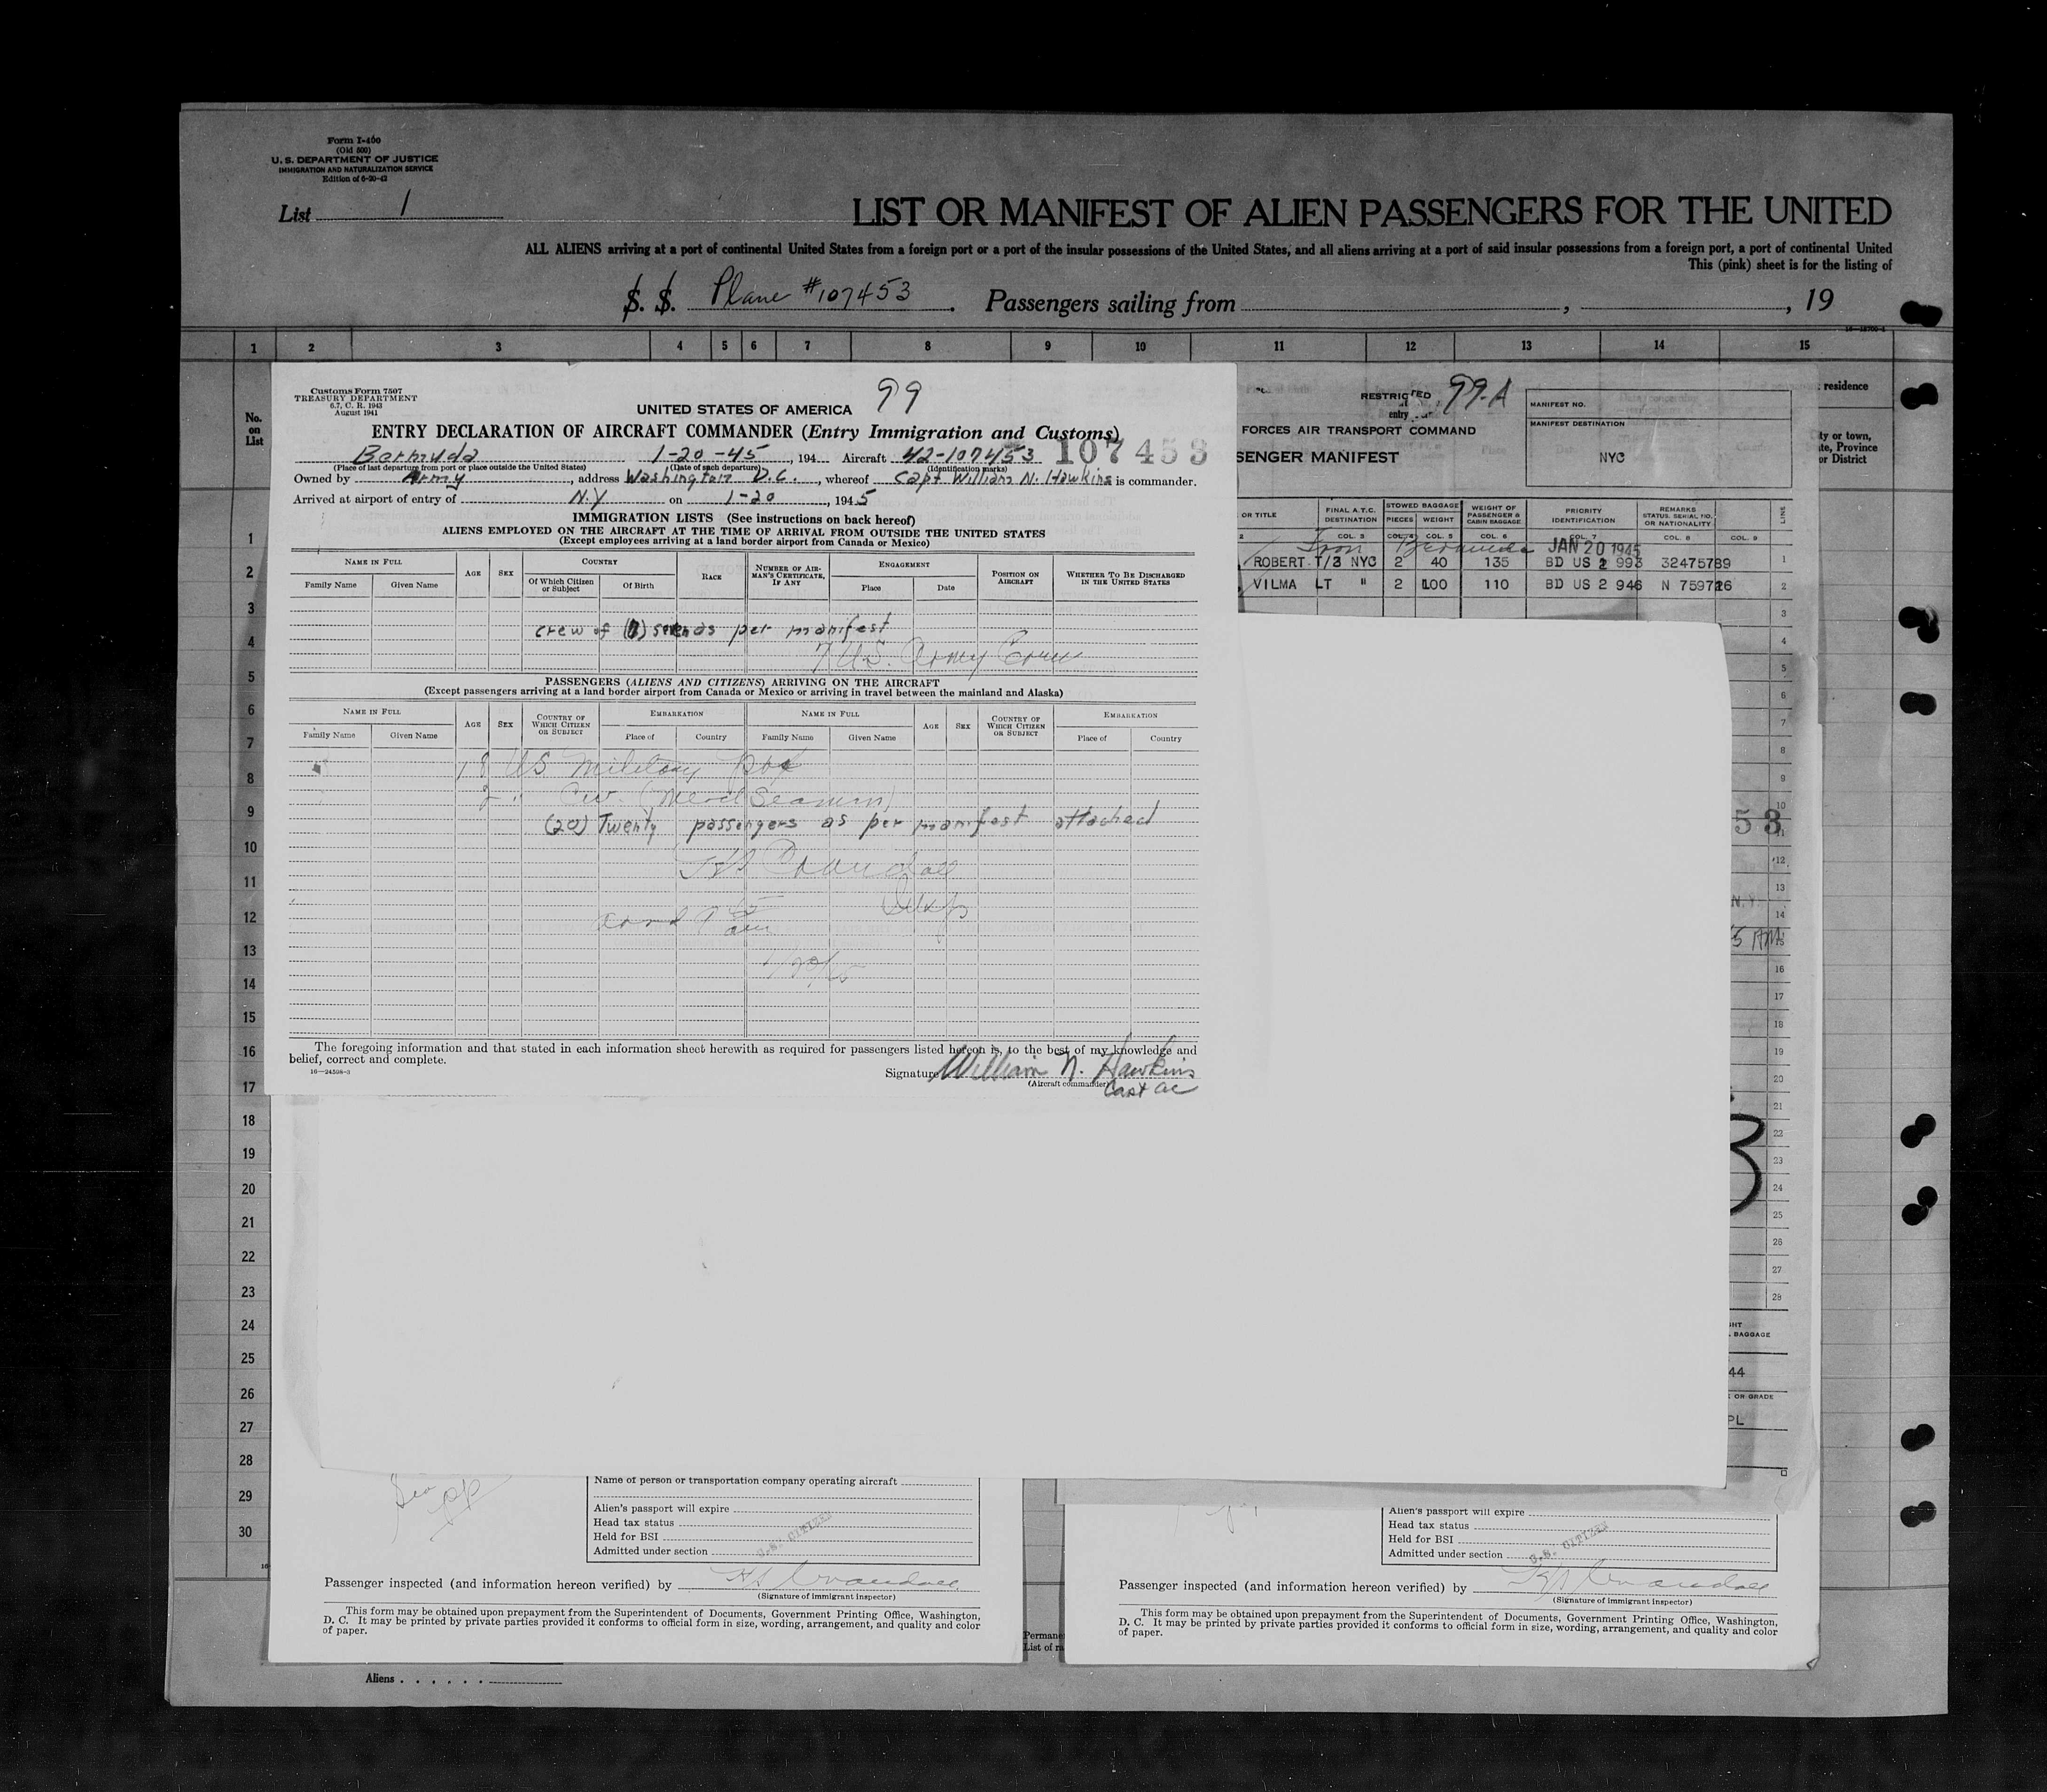 Form I-460
(Old 500)
U. S. DEPARTMENT OF JUSTICE
IMMIGRATION AND NATURALIZATION SERVICE
Edition of 6-20-42
List 1
LIST OR MANIFEST OF ALIEN PASSENGERS FOR THE UNITED
ALL ALIENS arriving at a port of continental United States from a foreign port or a port of the insular possessions of the United States, and all aliens arriving at a port of said insular possessions from a foreign port, a port of continental United
This (pink) sheet is for the listing of
S. S. Plane #107453. Passengers sailing from , , 19
1 2 3 4 5 6 7 8 9 10 11 12 13 14 15
No. on List
1
2
3
4
5
6
7
8
9
10
11
12
13
14
15
16
17
18
19
20
21
22
23
24
25
26
27
28
29
30
Customs Form 7507
TREASURY DEPARTMENT
6.7, C. R. 1943
August 1941
99
UNITED STATES OF AMERICA
ENTRY DECLARATION OF AIRCRAFT COMMANDER (Entry Immigration and Customs)
Bermuda 1-20-45, 194 Aircraft 42-107453 107453
(Place of last departure from port or place outside the United States) (Date of such departure) (Identification marks)
Owned by Army, address Washington D.C., whereof Capt William N. Hawkins is commander.
Arrived at airport of entry of N.Y on 1-20, 1945
IMMIGRATION LISTS (See instructions on back hereof)
ALIENS EMPLOYED ON THE AIRCRAFT AT THE TIME OF ARRIVAL FROM OUTSIDE THE UNITED STATES
(Except employees arriving at a land border airport from Canada or Mexico)
NAME IN FULL AGE SEX COUNTRY RACE NUMBER OF AIRMAN'S CERTIFICATE, IF ANY ENGAGEMENT POSITION ON AIRCRAFT WHETHER TO BE DISCHARGED IN THE UNITED STATES
Family Name Given Name Of Which Citizen or Subject Of Birth Place Date
crew of as per manifest
7 U.S. Army Crew
PASSENGERS (ALIENS AND CITIZENS) ARRIVING ON THE AIRCRAFT
(Except passengers arriving at a land border airport from Canada or Mexico or arriving in travel between the mainland and Alaska)
NAME IN FULL AGE SEX COUNTRY OF WHICH CITIZEN OR SUBJECT EMBARKATION NAME IN FULL AGE SEX COUNTRY OF WHICH CITIZEN OR SUBJECT EMBARKATION
Family Name Given Name Place of Country Family Name Given Name Place of Country
18 US Military
2 " Civ. (Merch Seamen)
(20) Twenty passengers as per manifest attached
Crandall
Insp
945 am
1/20/45
The foregoing information and that stated in each information sheet herewith as required for passengers listed hereon is, to the best of my knowledge and
belief, correct and complete.
16—24598-3
Signature William N. Hawkins
(Aircraft commander)
Capt AC
RESTRICTED 99-A
entry
FORCES AIR TRANSPORT COMMAND
SENGER MANIFEST
MANIFEST NO.
MANIFEST DESTINATION
NYC
residence
ty or town,
ate, Province
or District
OR TITLE FINAL A.T.C. DESTINATION STOWED BAGGAGE PIECES WEIGHT WEIGHT OF PASSENGER & CABIN BAGGAGE PRIORITY IDENTIFICATION REMARKS STATUS, SERIAL NO. OR NATIONALITY LINE
2 COL. 3 COL. 4 COL. 5 COL. 6 COL. 7 COL. 8 COL. 9
From Bermuda JAN 20 1945
ROBERT T/3 NYC 2 40 135 BD US 2 993 32475789 1
VILMA LT " 2 100 110 BD US 2 946 N 759726 2
3
4
5
6
7
8
9
10
53
12
13
N.Y.
14
5 AM
16
17
18
19
20
21
22
3
23
24
25
26
27
28
BAGGAGE
44
OR GRADE
PL
Name of person or transportation company operating aircraft
Alien's passport will expire
Head tax status
Held for BSI
Admitted under section U.S. CITIZEN
Passenger inspected (and information hereon verified) by Crandall
(Signature of immigrant inspector)
This form may be obtained upon prepayment from the Superintendent of Documents, Government Printing Office, Washington,
D. C. It may be printed by private parties provided it conforms to official form in size, wording, arrangement, and quality and color
of paper.
Permane
List of ra
Alien's passport will expire
Head tax status
Held for BSI
Admitted under section U.S. CITIZEN
Passenger inspected (and information hereon verified) by Crandall
(Signature of immigrant inspector)
This form may be obtained upon prepayment from the Superintendent of Documents, Government Printing Office, Washington,
D. C. It may be printed by private parties provided it conforms to official form in size, wording, arrangement, and quality and color
of paper.
Aliens